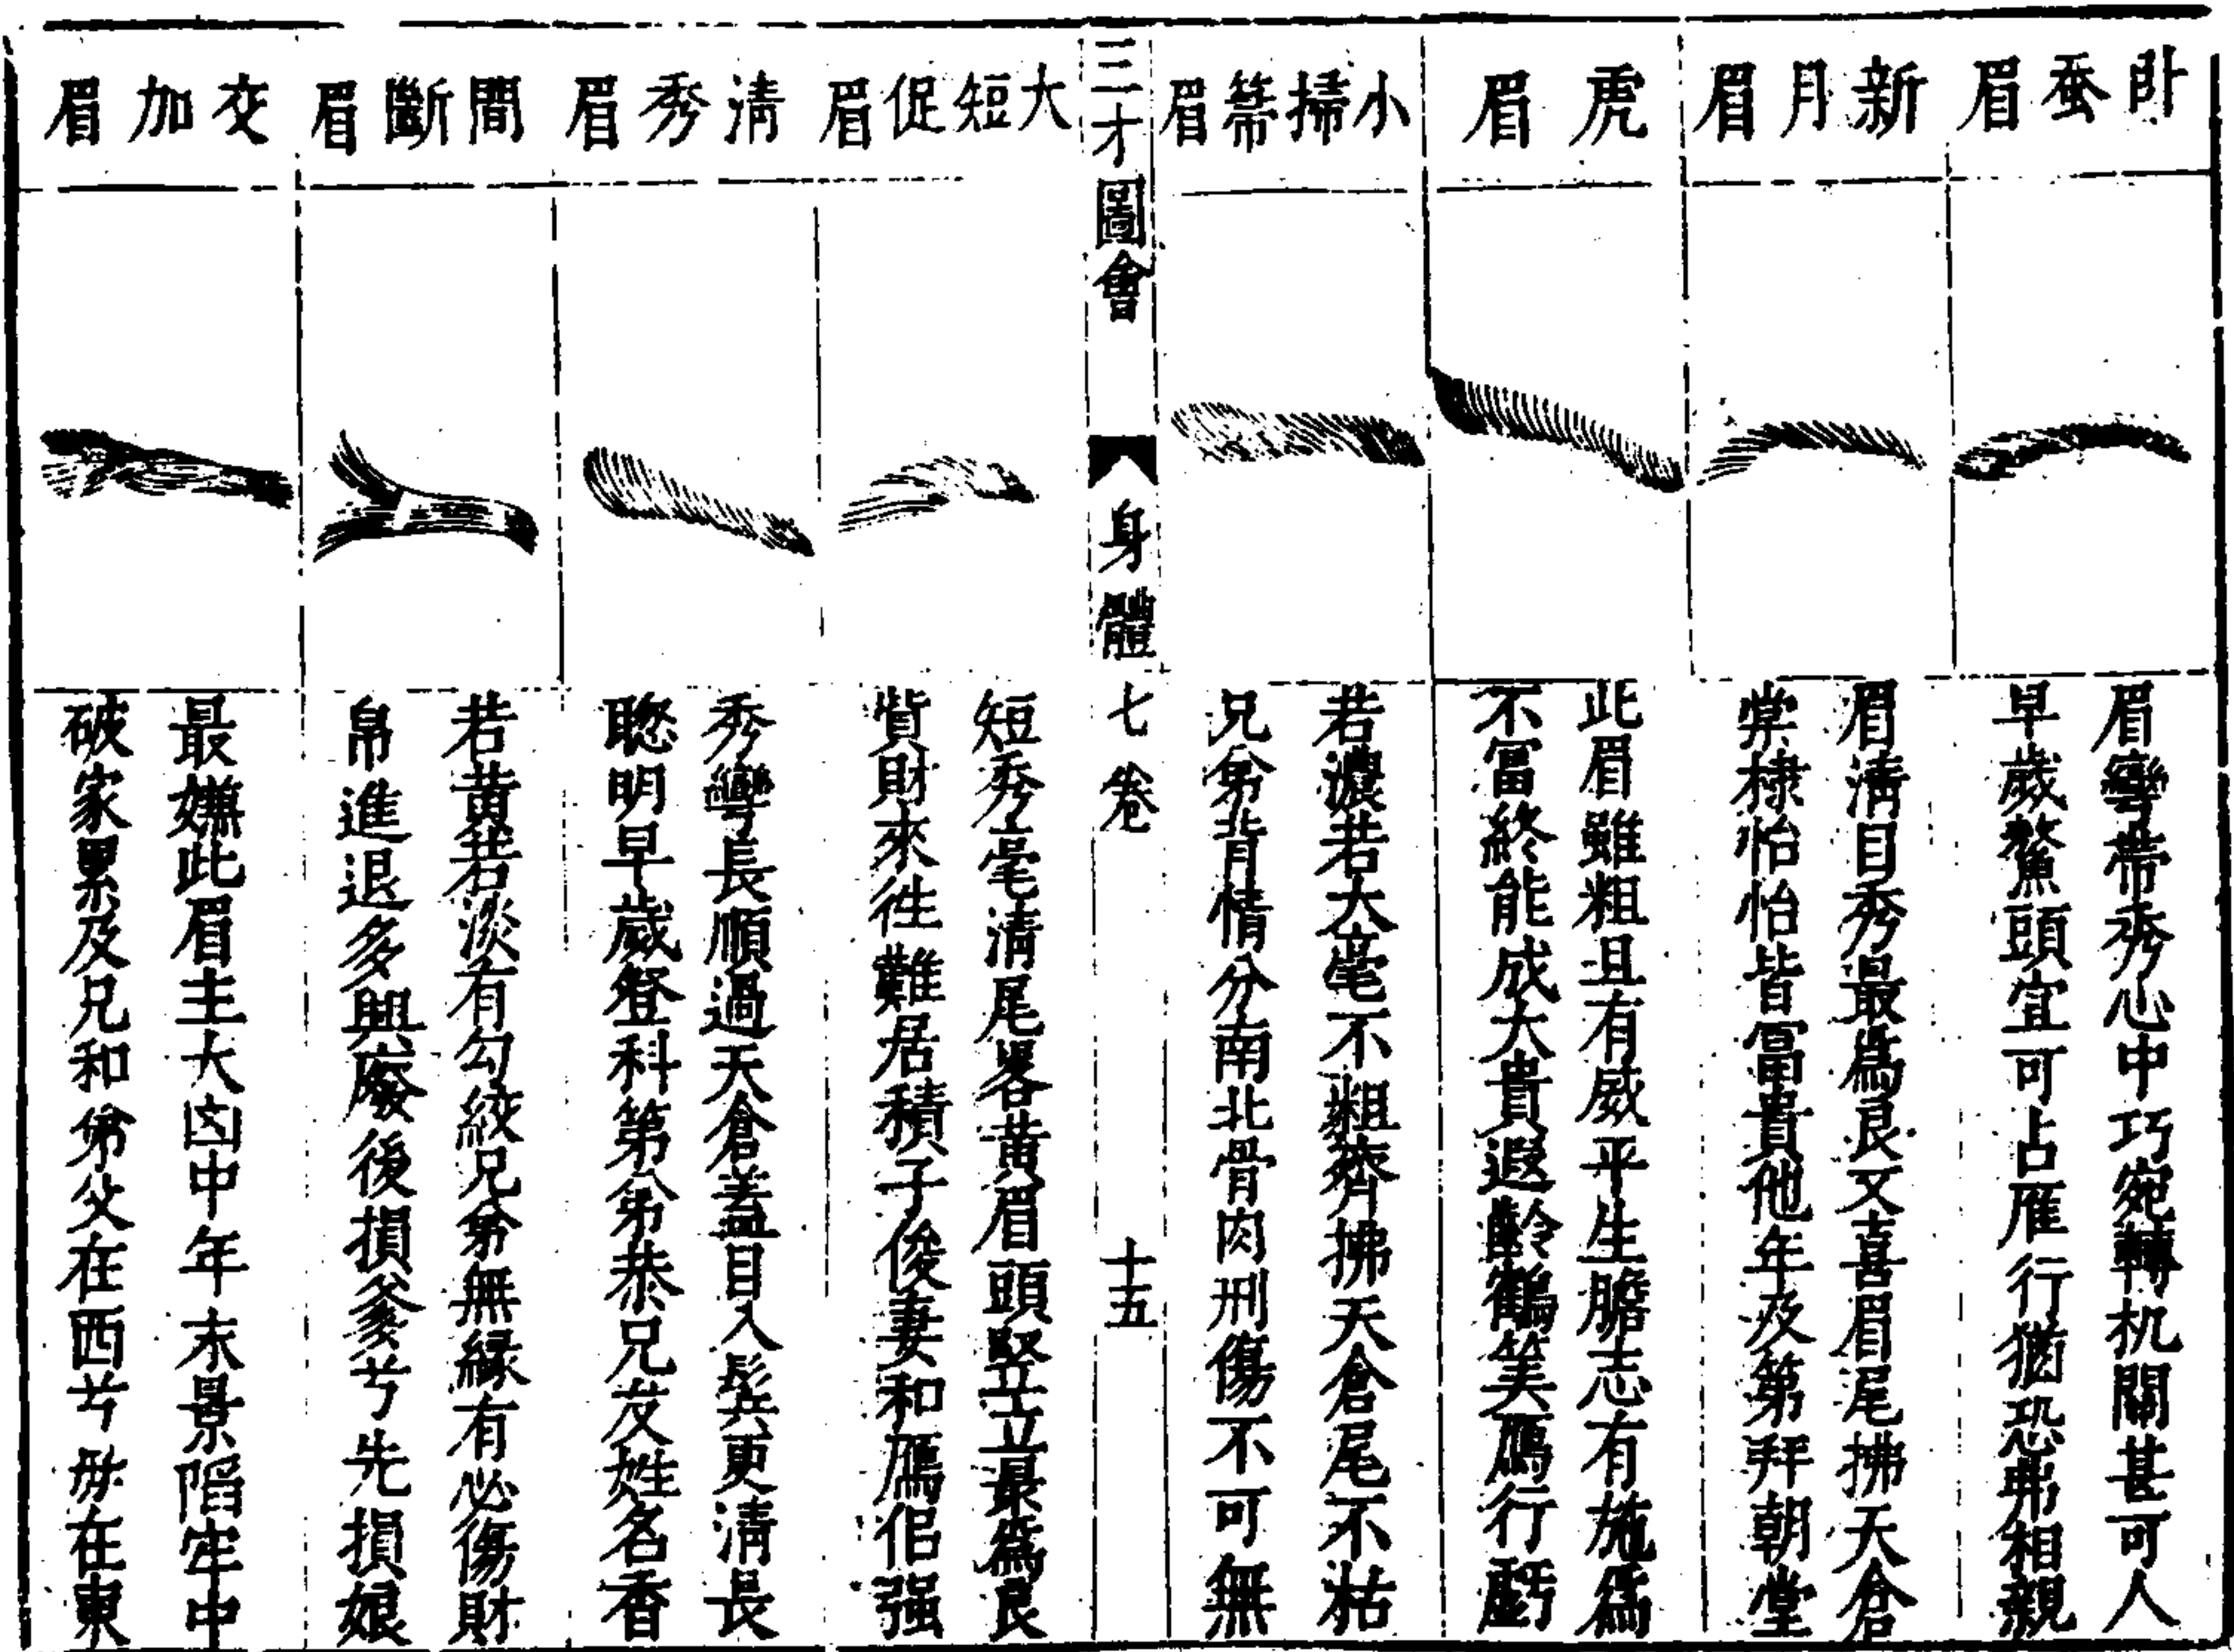 卧蚕眉
眉彎帶秀心中巧宛轉机關甚可人
早歲鰲頭宜可占雁行猶恐弗相親
新月眉
眉清目秀最爲良又喜眉尾拂天倉
棠棣怡怡皆冨貴他年及第拜朝堂
虎眉
此眉雖粗且有威平生膽志有施爲
不冨終能成大貴遐齡鶴筭鴈行虧
小掃箒眉
若濃若大毫不粗齊拂天倉尾不枯
兄弟背情分南北骨肉刑傷不可無
三才圖會
身體
七卷
十五
大短促眉
短秀毫清尾畧黄眉頭竪立最爲良
貲財來徃難居積子俊妻和鴈侣强
清秀眉
秀彎長順過天倉盖目入鬂更清長
聦明早歲登科第弟恭兄友姓名香
間斷眉
若黄若淡有勾絞兄弟無緣有必傷財
帛進退多興廢後損爹兮先損娘
交加眉
最嫌此眉主大凶中年末景陷牢中
破家累及兄和弟父在西兮母在東